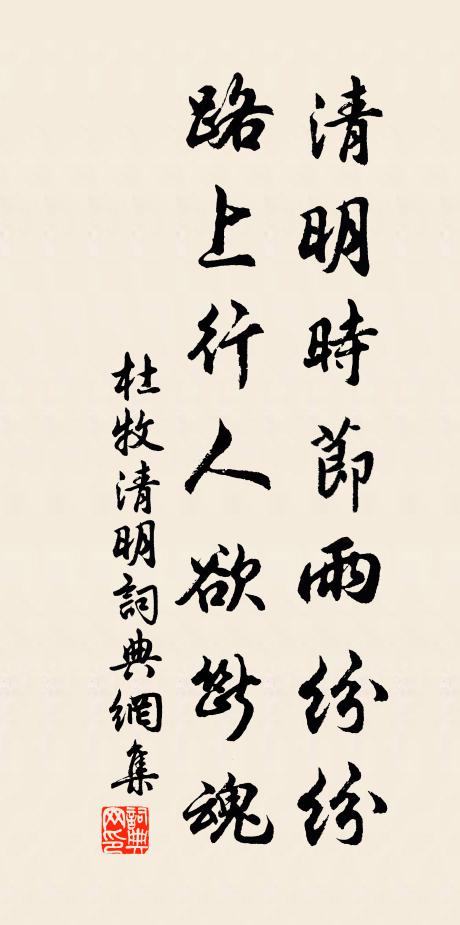 清明時節雨紛紛
路上行人欲斷魂
杜牧清明詞典網集
詞典網印